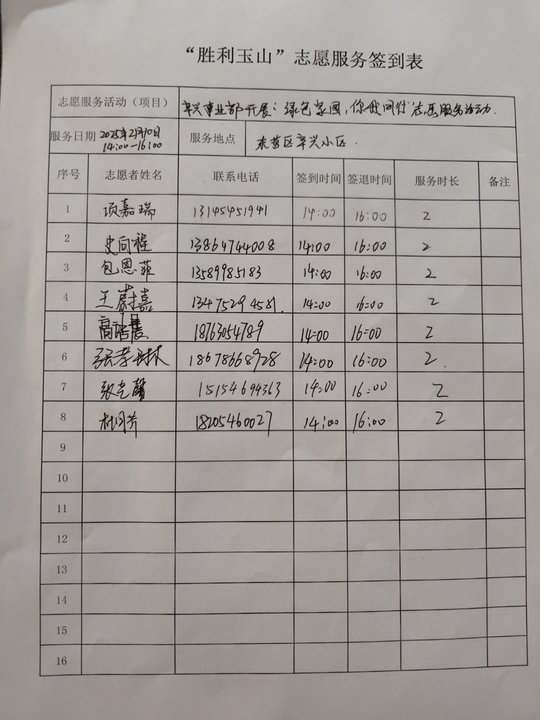 “胜利玉山”志愿服务签到表
志愿服务活动（项目） 辛兴事业部开展：绿色家园，你我同行志愿服务活动.
服务日期 2025年2月10日 14:00—16:00 服务地点 东营区辛兴小区.
序号 志愿者姓名 联系电话 签到时间 签退时间 服务时长 备注
1 项嘉瑞 13145451941 14:00 16:00 2
2 史同程 13864744008 14:00 16:00 2
3 包恩菲 13589985183 14:00 16:00 2
4 王蔚嘉 13475294581. 14:00 16:00 2
5 18763054789 14:00 16:00 2
6 18678668928 14:00 16:00 2.
7 15154694363 14:00 16:00 2
8 18205460027 14:00 16:00 2
9
10
11
12
13
14
15
16